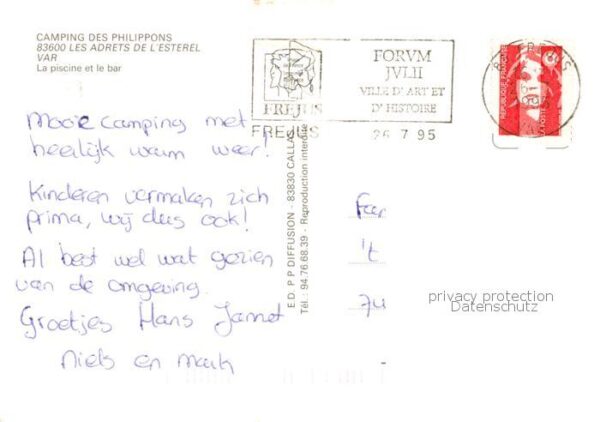 CAMPING DES PHILIPPONS
83600 LES ADRETS DE L'ESTEREL
VAR
La piscine et le bar
Mooie camping met
heerlijk warm weer!
Kinderen vermaken zich
prima, wij dus ook!
Al best wel wat gezien
van de omgeving.
Groetjes Hans Jannet
Niels en Mark
ED. P P DIFFUSION - 83830 CALLAS
Tél.: 94.76.68.39 - Reproduction interdite
FREJUS
FREJUS
FORVM
JVLII
VILLE D'ART ET
D'HISTOIRE
26 7 95
REPUBLIQUE FRANÇAISE
LA POSTE
Fam
't
74
privacy protection
Datenschutz